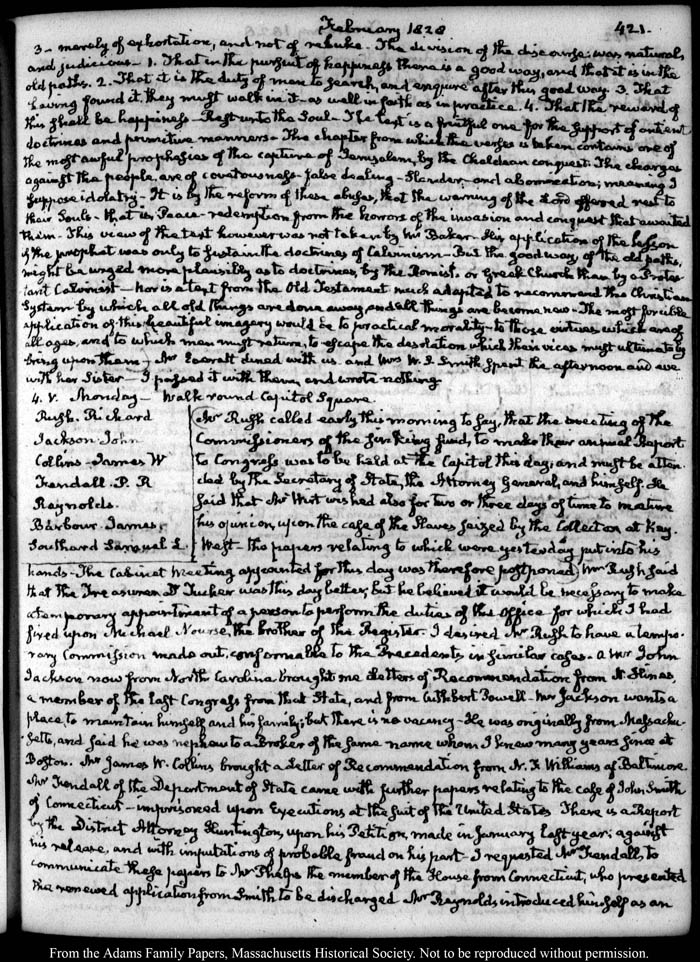 February 1828
421.
3 - merely of exhortation, and not of rebuke - The division of the discourse was natural
and judicious - 1. That in the pursuit of happiness there is a good way, and that it is in the
old paths. 2. That it is the duty of man to search, and enquire after this good way. 3. That
having found it, they must walk in it - as well in faith as in practice. 4. That the reward of
this shall be happiness - Rest unto the Soul - The text is a fruitful one for the support of antient
doctrines and primitive manners - The chapter from which the verse is taken contains one of
the most awful prophecies of the capture of Jerusalem, by the Chaldean conquest. The charges
against the people, are of covetousness - false dealing - Slander - and abomination; meaning I
suppose idolatry - It is by the reform of these abuses, that the warning of the Lord offered rest to
their Souls - that is, Peace - redemption from the horrors of the invasion and conquest that awaited
them. This view of the text however was not taken by Mr Baker - His application of the lesson
of the prophet was only to sustain the doctrines of Calvinism - But the good way, of the old paths,
might be urged more plausibly as to doctrines, by the Romish, or Greek Church than by a Protes-
tant Calvinist - Nor is a text from the Old Testament much adapted to recommend the Christian
System by which all old things are done away, and all things are become new - The most forcible
application of this beautiful imagery would be to practical morality - to those virtues which are of
all ages, and to which man must return, to escape the desolation which their vices must ultimately
bring upon them - Mr Everett dined with us. and Mrs W. S. Smith spent the afternoon and eve
with her Sister - I passed it with them, and wrote nothing
4. V. Monday - Walk round Capitol Square.
Rush. Richard
Jackson John
Collins - James W
Trendall. P. R
Reynolds.
Barbour. James.
Southard Samuel L.
Mr Rush called early this morning to say, that the meeting of the
Commissioners of the sinking fund, to make their annual Report
to Congress was to be held at the Capitol this day, and must be atten-
ded by the Secretary of State, the Attorney General, and himself. He
said that Mr Wirt wished also for two or three days of time to mature
his opinion, upon the case of the Slaves seized by the Collector at Key.
West - the papers relating to which were yesterday put into his
hands - The Cabinet Meeting appointed for this day was therefore postponed. Mr Rush said
that the Treasurer Dr Tucker was this day better, but he believed it would be necessary to make
a temporary appointment of a person to perform the duties of the Office for which I had
fixed upon Michael Nourse, the brother of the Register. I desired Mr Rush to have a tempo-
rary Commission made out, conformable to the Precedents, in similar cases. A Mr John
Jackson now from North Carolina brought me Letters of Recommendation from R. Hines,
a member of the last Congress from that State, and from Cuthbert Powell. Mr Jackson wants a
place, to maintain himself and his family; but there is no vacancy - He was originally from Massachu-
setts, and said he was nephew to a Broker of the same name whom I knew many years since at
Boston. Mr James W. Collins brought a Letter of Recommendation from N. F. Williams of Baltimore
Mr Trendall of the Department of State came with further papers relating to the case of John Smith
of Connecticut - imprisoned upon Executions at the suit of the United States There is a Report
by the District Attorney Huntington, upon his Petition, made in January last year; against
his release, and with imputations of probable fraud on his part - I requested Mr Trendall, to
communicate these papers to Mr Phelps the member of the House from Connecticut, who presented
the renewed application from Smith to be discharged Mr Reynolds introduced himself as an
From the Adams Family Papers, Massachusetts Historical Society. Not to be reproduced without permission.